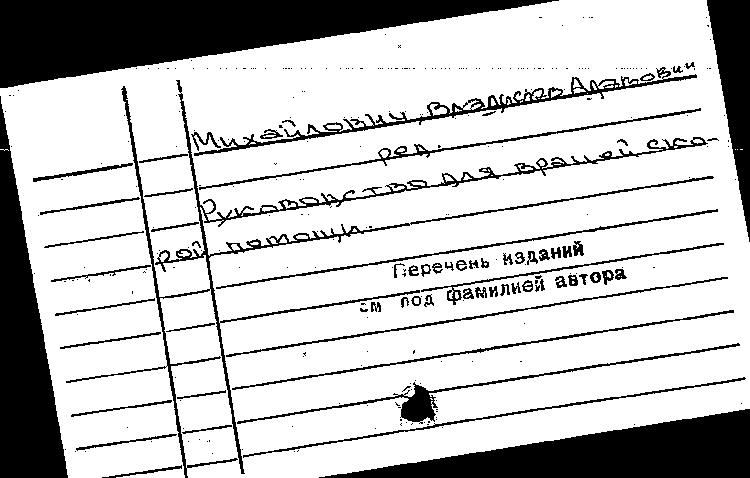 Михайлович, Владислав Адамович
ред.
Руководство для врачей ско-
рой помощи.
Перечень изданий
см под фамилией автора